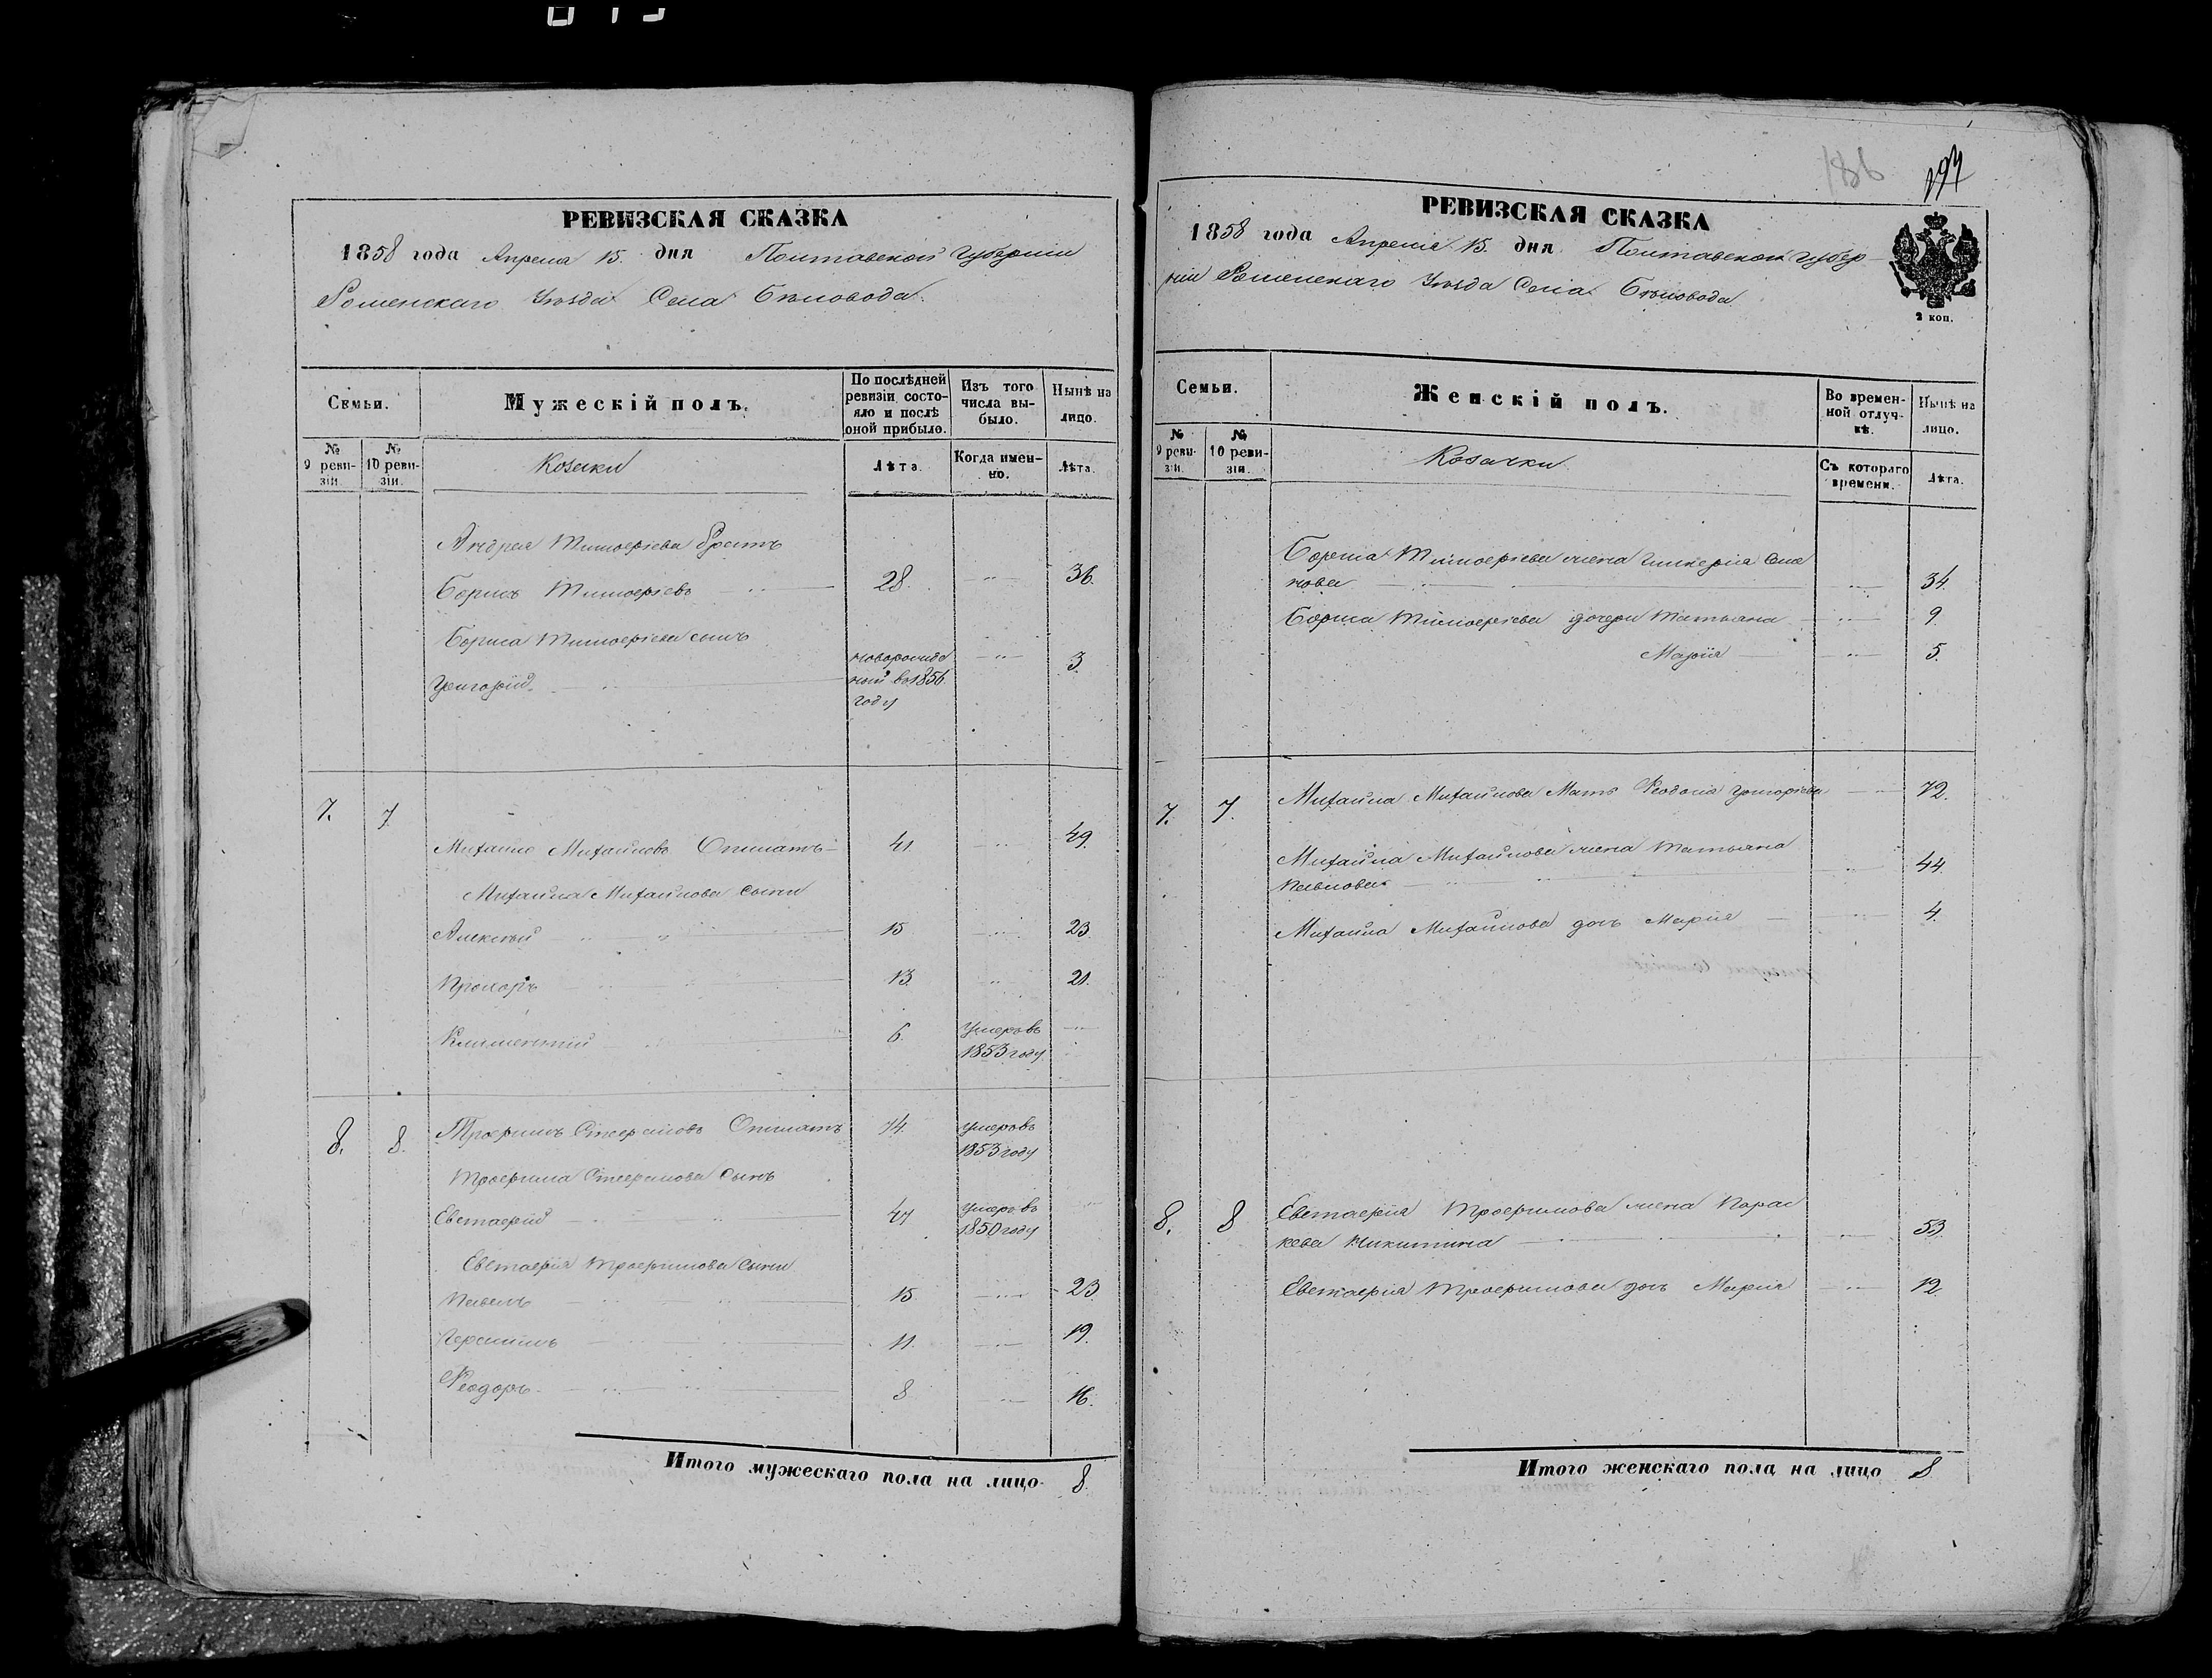 186 194
РЕВИЗСКАЯ СКАЗКА
1858 года Апреля 15. дня Полтавской Губерніи
Роменскаго Уѣзда Села Бѣловода.
Семьи.
Мужескій полъ.
По послѣдней ревизіи состо-
яло и послѣ оной прибыло.
Изъ того числа вы-
было.
Нынѣ на лицо.
№ 9 реви-
зіи.
№ 10 реви-
зіи.
Козаки
Лѣта.
Когда имен-
но.
Лѣта.
Андрея Тимофѣева братъ
Борисъ Тимофѣевъ 28. 36.
Бориса Тимофѣева сынъ
Григорій новорожде
ный въ 1856 3.
году
7. 7. Михайло Михайловъ Опишатъ 41 49.
Михайла Михайлова сыны
Алексѣй 15 23.
Прохоръ 13. 21.
Климентій 6. Умеръ въ
1853 году
8. 8. Трофимъ Стефановъ Опишатъ 74. умеръ въ
1853 году
Трофима Стефанова сынъ
Евстафій 47 умеръ въ
1850 году
Евстафія Трофимова сыны
Павелъ 15 23.
Герасимъ 11. 19.
Феодоръ 8 16.
Итого мужескаго пола на лицо 8.
РЕВИЗСКАЯ СКАЗКА
1858 года Апреля 15. дня Полтавской Губер
ніи Роменскаго Уѣзда Села Бѣловода
2 коп.
Семьи.
Женскій полъ.
Во времен-
ной отлуч-
кѣ.
Нынѣ на лицо.
№ 9 реви-
зіи.
№ 10 реви-
зіи.
Козачки
Съ котораго времени.
Лѣта.
Бориса Тимофѣева жена Гликерія Семе
нова 34.
Бориса Тимофѣева дочери Татьяна 9.
Марія 5.
7. 7. Михайла Михайлова Мать Феодосія Григорьева 72.
Михайла Михайлова жена Татьяна
Павлова 44.
Михайла Михайлова дочь Марія 4.
8. 8 Евстафія Трофимова жена Парас
кева Никитина 53.
Евстафія Трофимова дочь Марія 12.
Итого женскаго пола на лицо 8